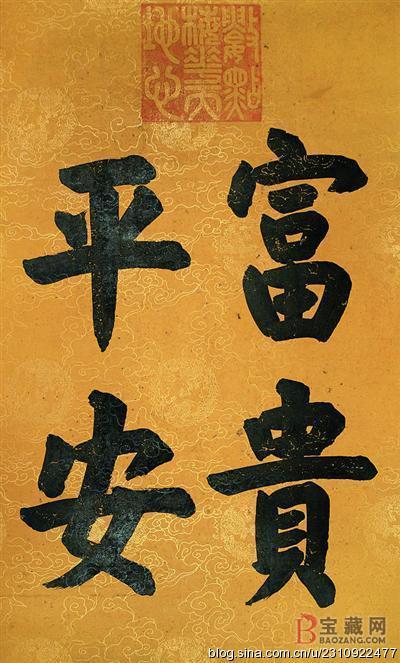 數點
梅花天
地心
富貴
平安
宝藏网
BAOZANG.COM
blog.sina.com.cn/u/2310922477